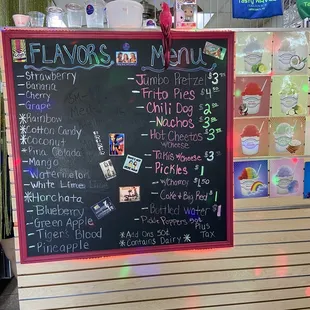 FLAVORS
- Strawberry
- Banana
- Cherry
- Grape
* Rainbow
* Cotton Candy
* Coconut
* Pina Colada
- Mango
- Watermelon
- White Lime
* Horchata
- Blueberry
- Green Apple
- Tiger's Blood
- Pineapple
Menu
- Jumbo Pretzel $3
- Frito Pies $4
- Chili Dog $2
- Nachos $3
- Hot Cheetos $3
w/Cheese
- Takis w/cheese $3
- Pickles $1
- w/Chamoy $1.50
- Bottled Water
- Pickle Peppers 50¢
*Add Ons 50¢ Plus
*Contains Dairy * Tax